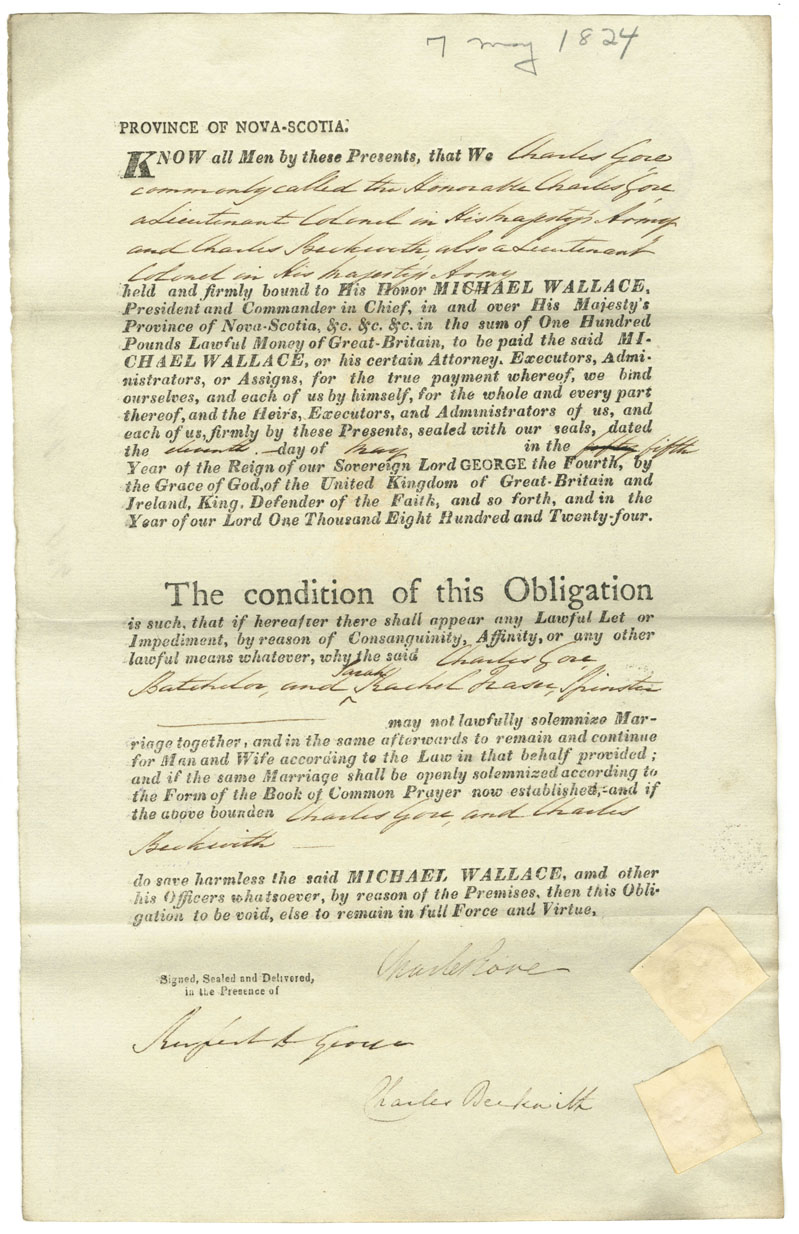 7 May 1824
PROVINCE OF NOVA-SCOTIA.
KNOW all Men by these Presents, that We Charles Gore
commonly called the Honorable Charles Gore
a Lieutenant Colonel in His Majesty's Army
and Charles Beckwith, also a Lieutenant
Colonel in His Majesty's Army
held and firmly bound to His Honor MICHAEL WALLACE,
President and Commander in Chief, in and over His Majesty's
Province of Nova-Scotia, &c. &c. &c. in the sum of One Hundred
Pounds Lawful Money of Great-Britain, to be paid the said MI-
CHAEL WALLACE, or his certain Attorney, Executors, Admi-
nistrators, or Assigns, for the true payment whereof, we bind
ourselves, and each of us by himself, for the whole and every part
thereof, and the Heirs, Executors, and Administrators of us, and
each of us, firmly by these Presents, sealed with our seals, dated
the day of May in the fifth
Year of the Reign of our Sovereign Lord GEORGE the Fourth, by
the Grace of God, of the United Kingdom of Great-Britain and
Ireland, King, Defender of the Faith, and so forth, and in the
Year of our Lord One Thousand Eight Hundred and Twenty-four.
The condition of this Obligation
is such, that if hereafter there shall appear any Lawful Let or
Impediment, by reason of Consanguinity, Affinity, or any other
lawful means whatever, why the said Charles Gore
Batchelor, and Sarah Rachel Fraser, Spinster
may not lawfully solemnize Mar-
riage together, and in the same afterwards to remain and continue
for Man and Wife according to the Law in that behalf provided;
and if the same Marriage shall be openly solemnized according to
the Form of the Book of Common Prayer now established,-and if
the above bounden Charles Gore, and Charles
Beckwith
do save harmless the said MICHAEL WALLACE, amd other
his Officers whatsoever, by reason of the Premises, then this Obli-
gation to be void, else to remain in full Force and Virtue,
Charles Gore
Signed, Sealed and Delivered,
in the Presence of
Rupert D George
Charles Beckwith